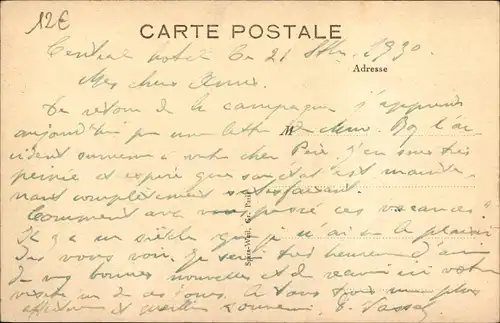 12€
CARTE POSTALE
Central Hotel Ce 21 1930.
Adresse
Mes chers Amis.
De retour de la campagne j'apprends
aujourd'hui par une lettre de M l'ac-
cident survenu à votre cher Père. J'en suis très
peinée et espère que son état est mainte-
nant complètement satisfaisant.
Comment avez vous passé ces vacances?
Il y a un siècle que je n'ai eu le plaisir
de vous voir. Je serai très heureux d'avoir
de vos bonnes nouvelles et de recevoir votre
visite un de ces jours. A tous trois mes plus
affectueux et meilleurs souvenirs.